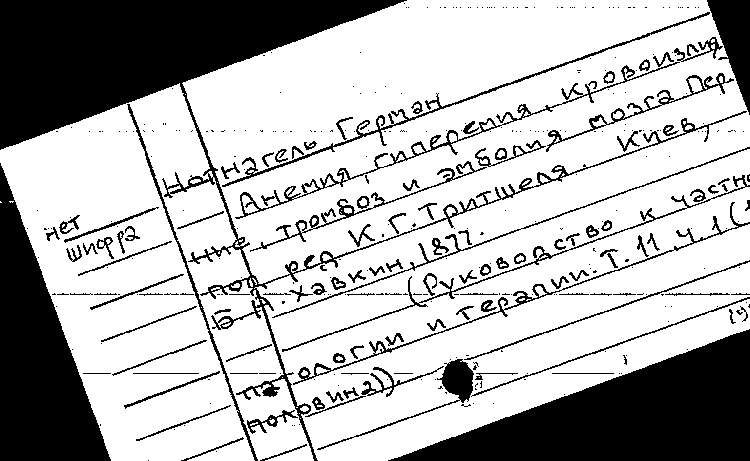 Нотнагель, Герман
Анемия, гиперемия, кровоизлия
ние, тромбоз и эмболия мозга Пер.
под ред К.Г. Тритшеля. Киев,
Б. Н. Хавкин, 1877.
(Руководство к частно
патологии и терапии. Т. 11, ч. 1 (1
половина)).
нет
шифра